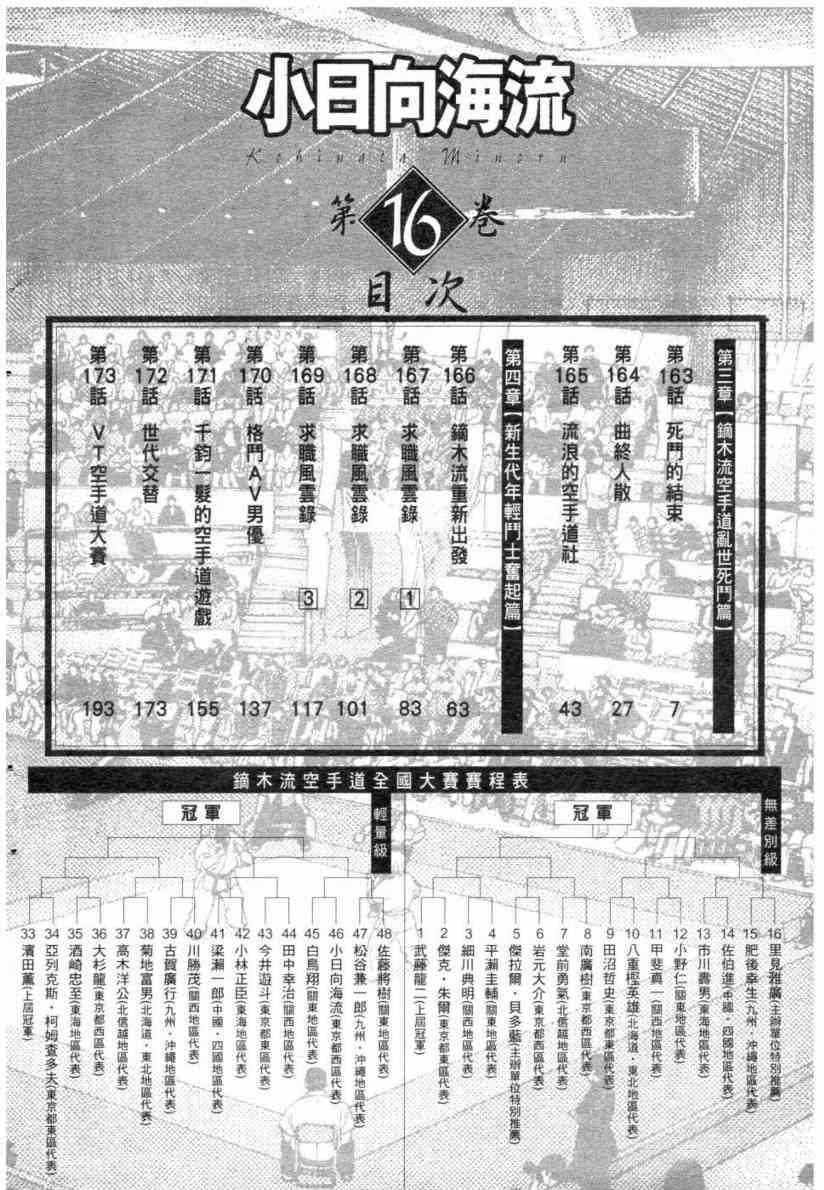 小日向海流
Kohinata Minoru
第16巻
目次
第三章【鏑木流空手道亂世死鬥篇】
第163話 死鬥的結束 7
第164話 曲終人散 27
第165話 流浪的空手道社 43
第四章【新生代年輕鬥士奮起篇】
第166話 鏑木流重新出發 63
第167話 求職風雲錄 1 83
第168話 求職風雲錄 2 101
第169話 求職風雲錄 3 117
第170話 格鬥AV男優 137
第171話 千鈞一髮的空手道遊戲 155
第172話 世代交替 173
第173話 VT空手道大賽 193
鏑木流空手道全國大賽賽程表
無差別級
冠軍
16 里見雅廣(主辦單位特別推薦)
15 肥後幸生(九州・沖繩地區代表)
14 佐伯進(中國・四國地區代表)
13 市川壽男(東海地區代表)
12 小野仁(關東地區代表)
11 甲斐眞一(關西地區代表)
10 八重樫英雄(北海道・東北地區代表)
9 田沼哲史(東京都東區代表)
8 南廣樹(東京都西區代表)
7 堂前勇氣(北信越地區代表)
6 岩元大介(東京都西區代表)
5 傑拉爾・貝多藍(主辦單位特別推薦)
4 平瀬圭輔(關東地區代表)
3 細川典明(關西地區代表)
2 傑克・朱爾(東京都東區代表)
1 武藤龍二(上屆冠軍)
輕量級
冠軍
48 佐藤將樹(關東地區代表)
47 松谷兼一郎(九州・沖繩地區代表)
46 小日向海流(東京都西區代表)
45 白鳥翔(關東地區代表)
44 田中幸治(關西地區代表)
43 今井遊斗(東京都東區代表)
42 小林正臣(東海地區代表)
41 梁瀨一郎(中國・四國地區代表)
40 川勝茂(關西地區代表)
39 古賀廣行(九州・沖繩地區代表)
38 菊地富男(北海道・東北地區代表)
37 高木洋公(北信越地區代表)
36 大杉龍(東京都西區代表)
35 酒崎忠至(東海地區代表)
34 亞列克斯・柯姆查多夫(東京都東區代表)
33 濱田薫(上屆冠軍)